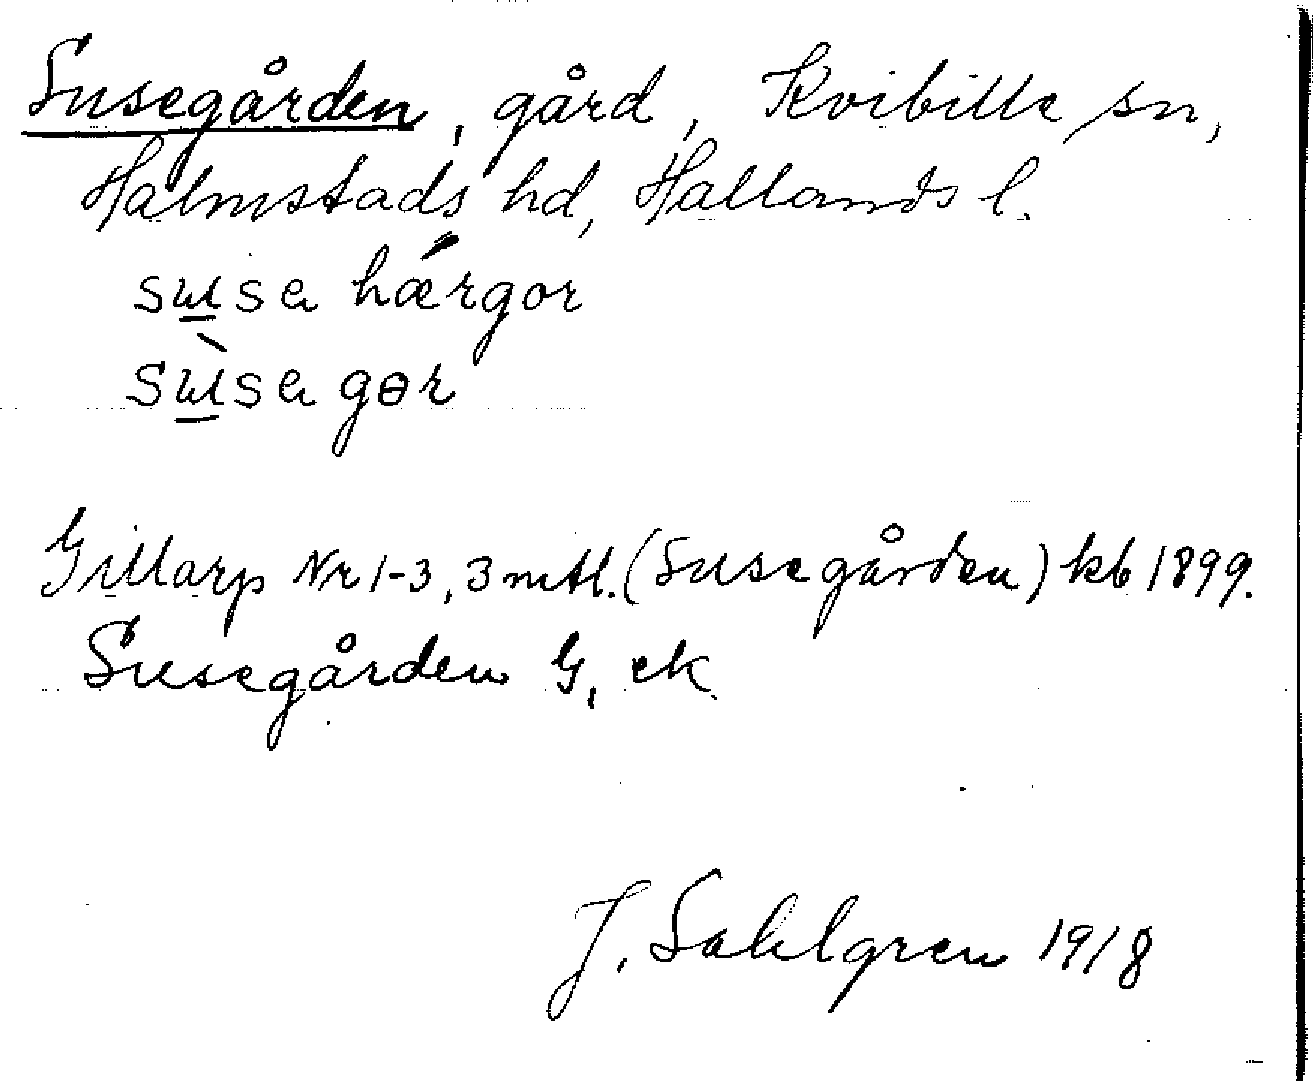 Susegården, gård, Kvibille sn,
Halmstads hd, Hallands l.
susa hærgor
sùsa gɵr
Gillarp Nr 1-3, 3 mtl. (Susegården) kb 1899.
Susegården G, ek
J. Sahlgren 1918